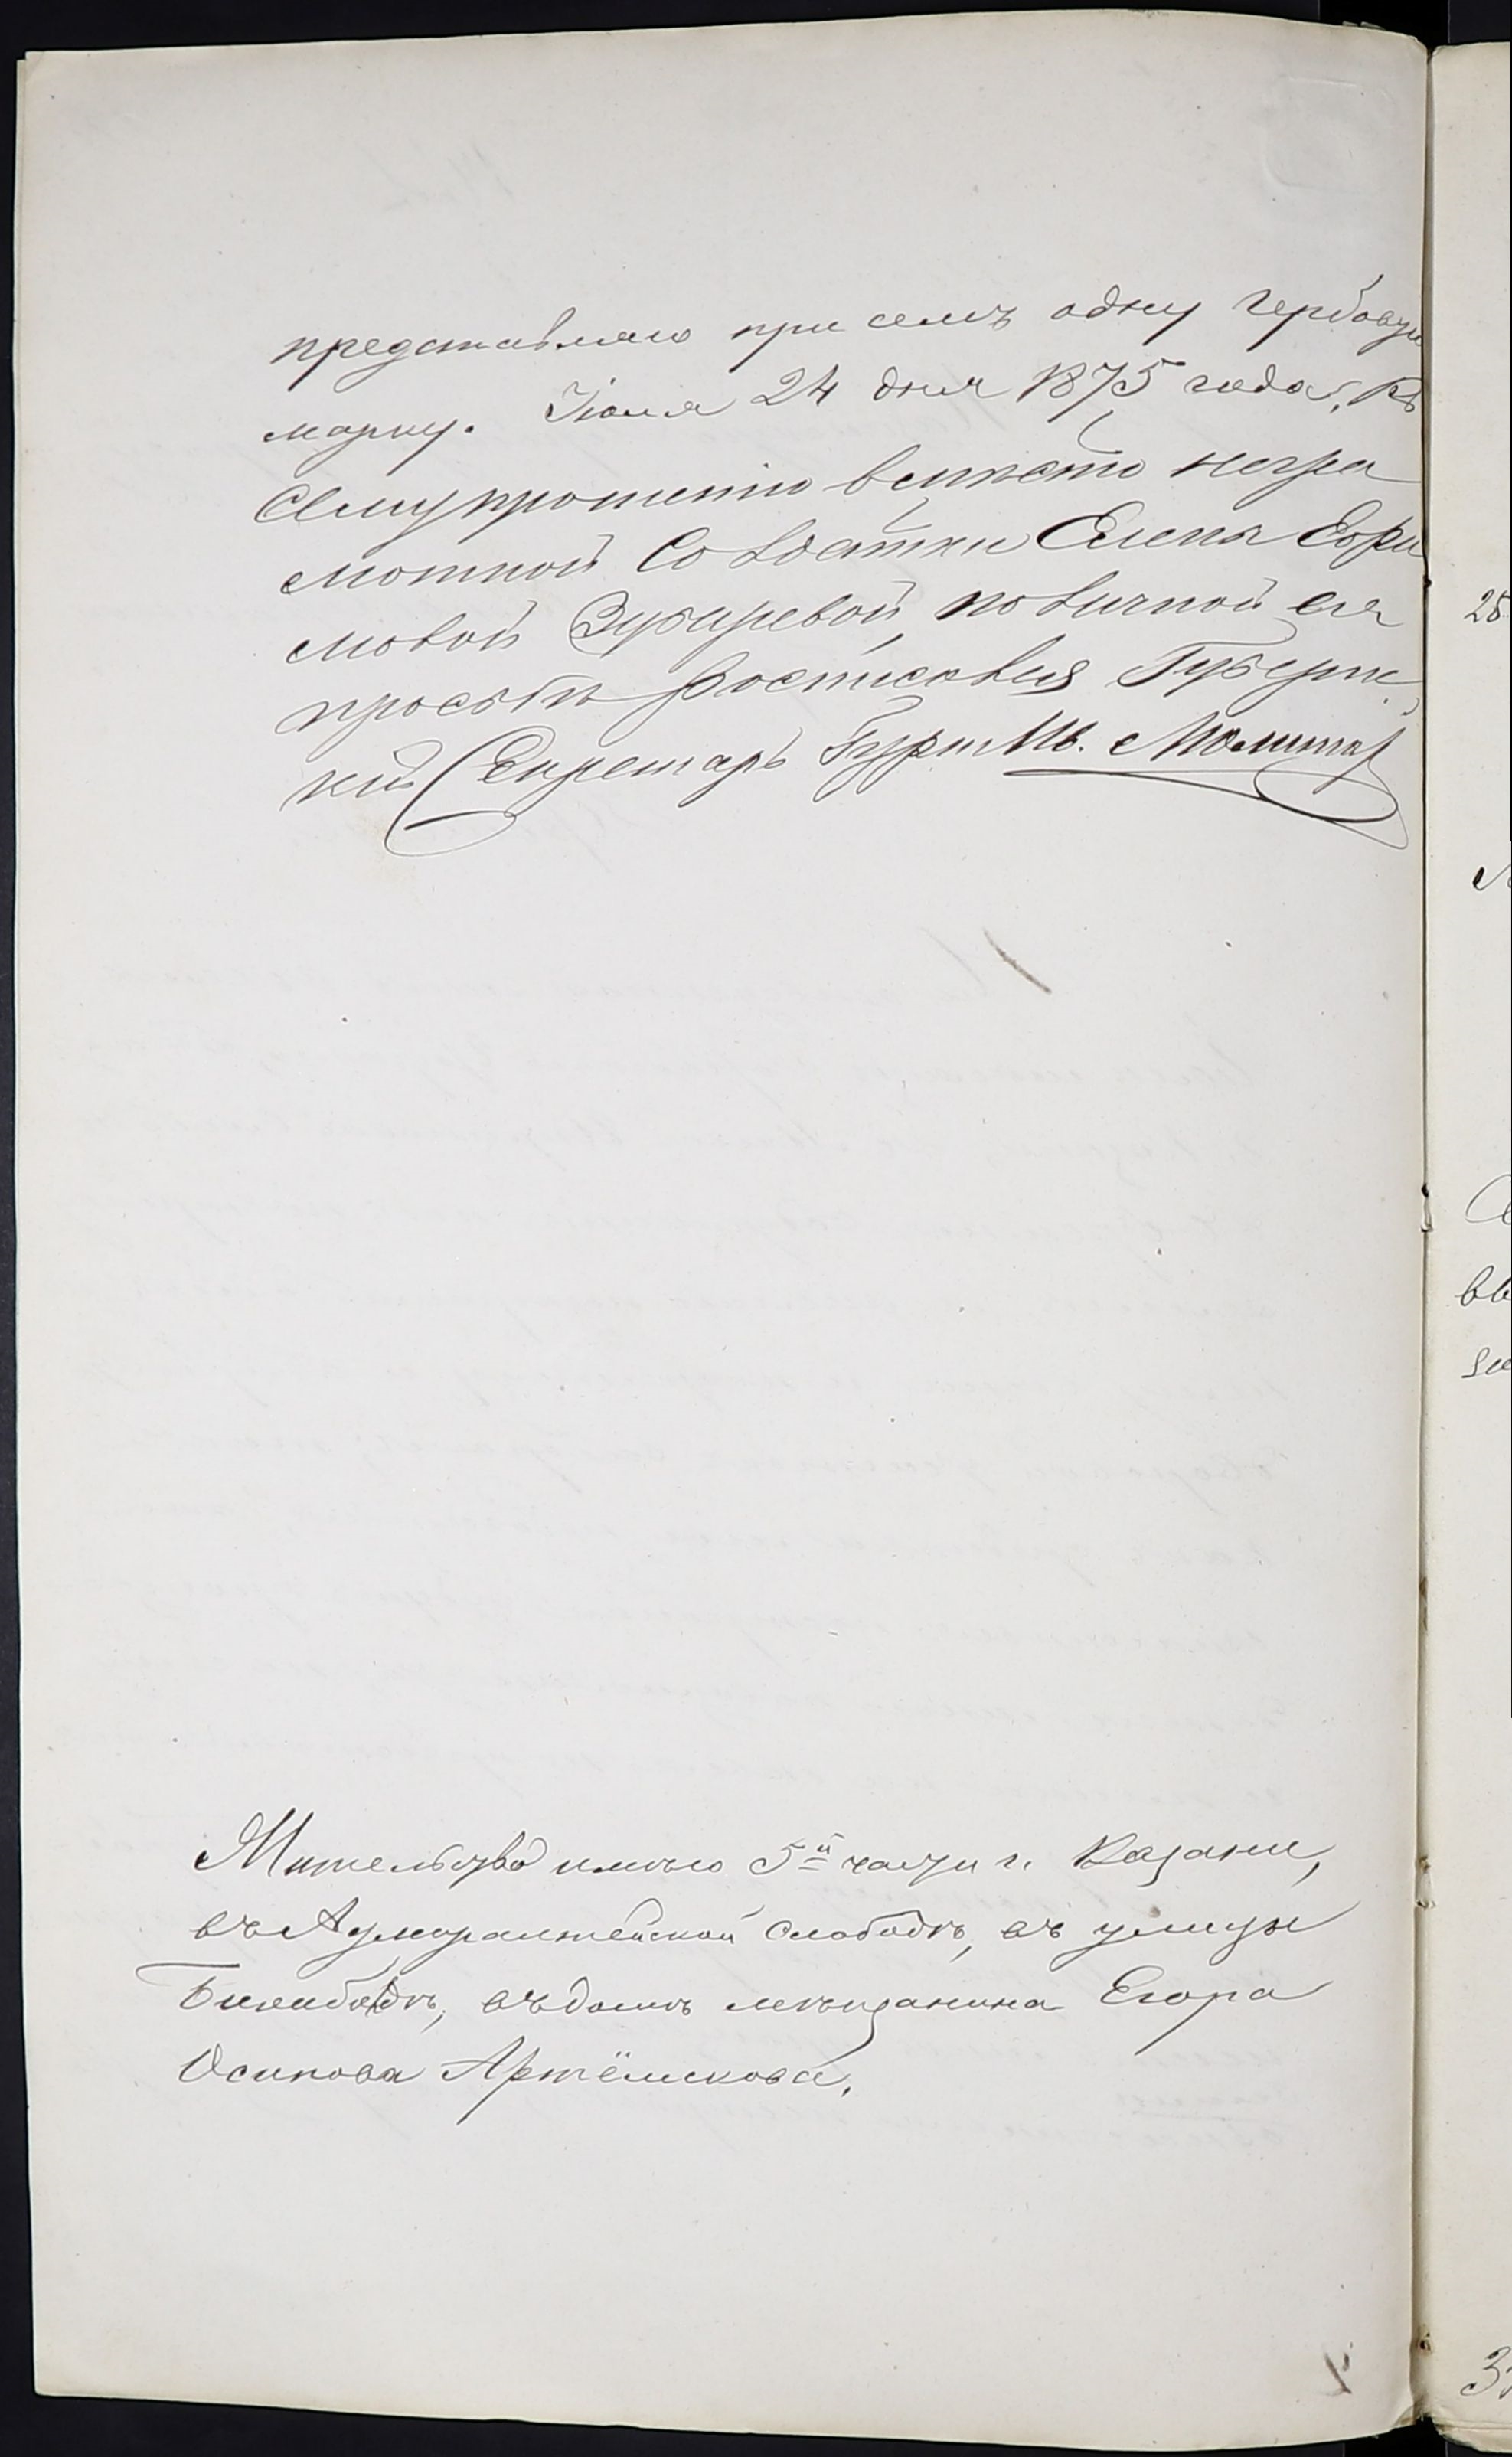 представляю при семъ одну гербовую
марку. Іюля 24 дня 1875 года. Къ
Сему прошенію вместо негра
мотной Солдатки Елены Ефи
мовой Зубаревой, поличной ея
прозбѣ росписался Губернс
кій Секретарь
Жительство имѣю 5й части г. Казани,
въ Адмиралтейской слободѣ, въ улицѣ
въ домѣ мѣщанина Егора
Осипова Артёмскова.